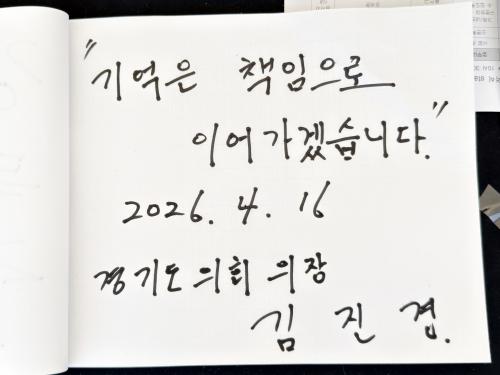 "기억은 책임으로
이어가겠습니다."
2026. 4. 16
경기도의회 의장
김 진 경.